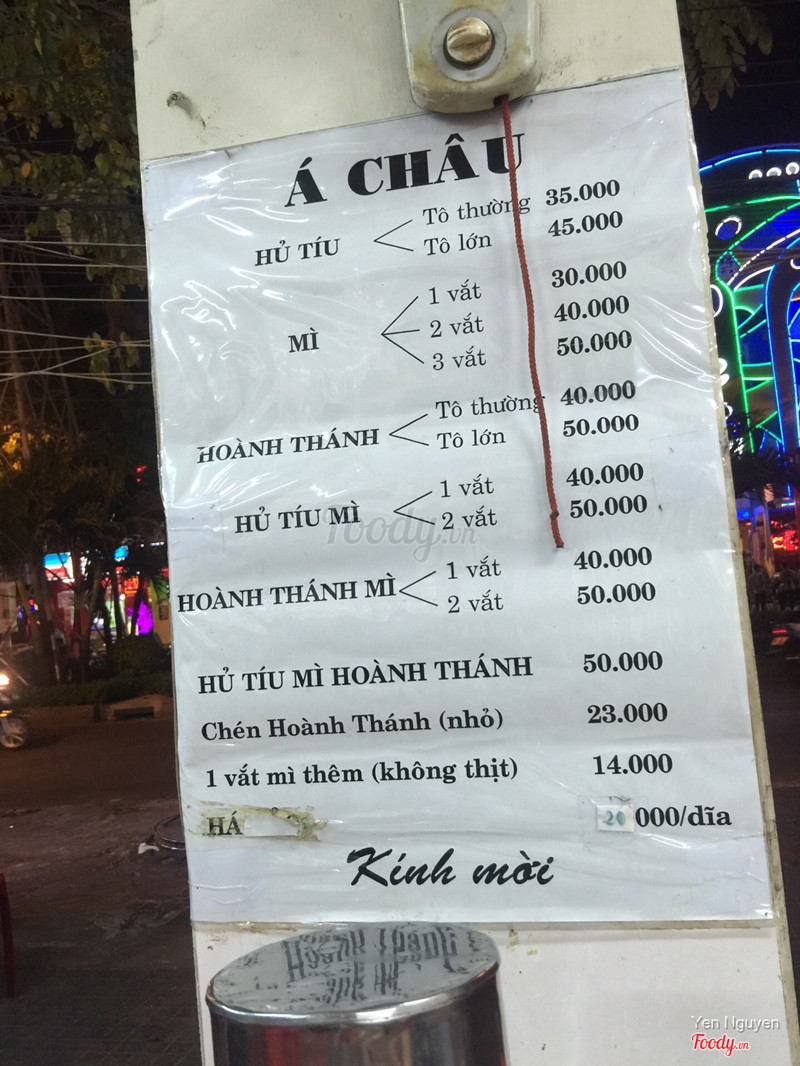 Á CHÂU
HỦ TÍU
Tô thường 35.000
Tô lớn 45.000
MÌ
1 vắt 30.000
2 vắt 40.000
3 vắt 50.000
HOÀNH THÁNH
Tô thường 40.000
Tô lớn 50.000
HỦ TÍU MÌ
1 vắt 40.000
2 vắt 50.000
HOÀNH THÁNH MÌ
1 vắt 40.000
2 vắt 50.000
HỦ TÍU MÌ HOÀNH THÁNH 50.000
Chén Hoành Thánh (nhỏ) 23.000
1 vắt mì thêm (không thịt) 14.000
HÁ 20 000/dĩa
Kính mời
Foody.vn
Yen Nguyen
Foody.vn